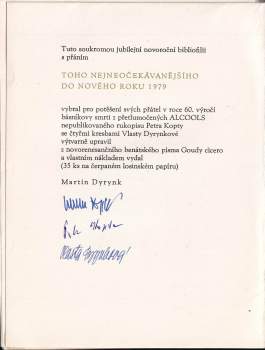 Tuto soukromou jubilejní novoroční bibliofilii
s přáním
TOHO NEJNEOČEKÁVANĚJŠÍHO
DO NOVÉHO ROKU 1979
vybral pro potěšení svých přátel v roce 60. výročí
básníkovy smrti z přetlumočených ALCOOLS
nepublikovaného rukopisu Petra Kopty
se čtyřmi kresbami Vlasty Dyrynkové
výtvarně upravil
z novorenesančního benátského písma Goudy cicero
a vlastním nákladem vydal
(35 ks na čerpaném losinském papíru)
Martin Dyrynk
Kopta
Vlasta Dyrynková